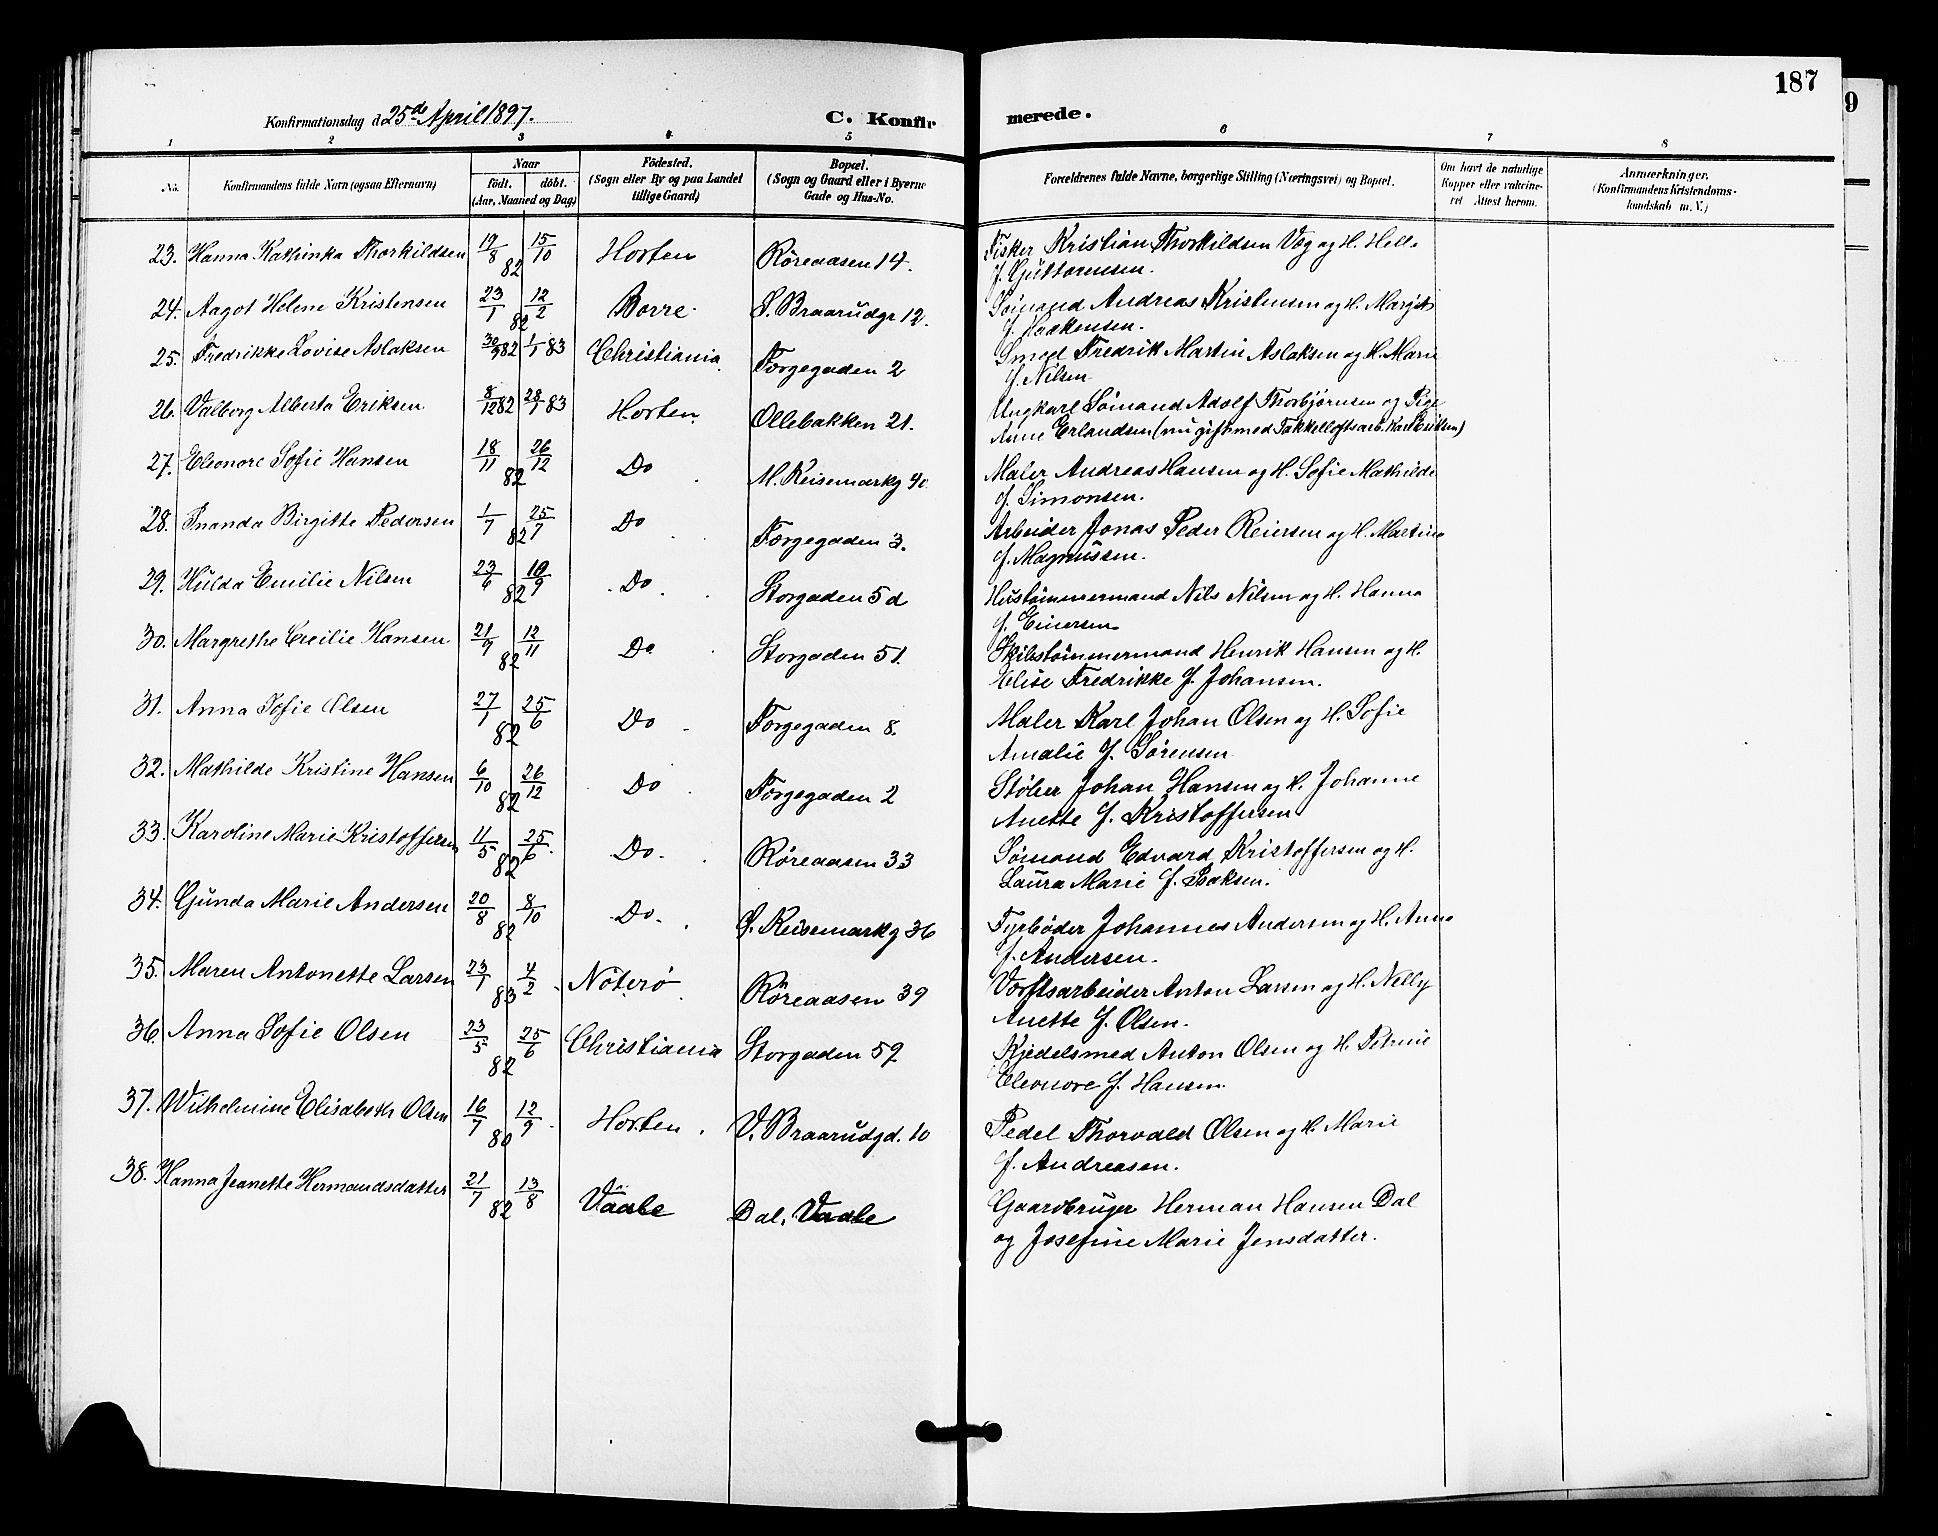 187
9
Konfirmationsdag d. 25de April 1897.
C. Konfir
merede.
1 2 3 4 5 6 7 8
No. Konfirmandens fulde Navn (ogsaa Efternavn) Naar født. døbt. (Aar, Maaned og Dag) Fødested. (Sogn eller By og paa Landet tillige Gaard) Bopæl. (Sogn og Gaard eller i Byerne Gade og Hus-No.
Forældrenes fulde Navne, borgerlige Stilling (Næringsvei) og Bopæl. Om havt de naturlige Kopper eller vaccineret. Attest herom. Anmærkninger. (Konfirmandens Kristendomskundskab m. V.)
23. Hanna Kathinka Thorkildsen 19/8 15/10 82 Horten Røreaasen 14. Fisker Kristian Thorkildsen Væg og H. Hella
f. Guttormsen.
24. Aagot Helene Kristensen 23/1 12/2 82 Borre S. Braarudgr 12. Sømand Andreas Kristensen og H. Margit
f. Haakensen.
25. Fredrikke Lovise Aslaksen 30/9 82 1/1 83 Christiania Fargegaden 2 Smed Fredrik Martin Aslaksen og H. Marie
f. Nilsen
26. Valborg Alberta Eriksen 8/12 82 28/1 83 Horten Ollebakken 21. Ungkarl Sømand Adolf Thorbjørnsen og Pige
Anne Erlandsen (nu gift med Takkelloftsarb. Karl Eriksen)
27. Eleonore Sofie Hansen 18/11 26/12 82 Do M. Keisemarkg 40. Maler Andreas Hansen og H. Sofie Mathilde
f. Simonsen.
28. Inanda Birgitte Pedersen 1/7 25/7 82 Do Fargegaden 3. Arbeider Jonas Peder Reiersen og H. Martine
f. Magnussen.
29. Hulda Emilie Nilsen 23/6 10/9 82 Do Storgaden 5 d Hustømmermand Nils Nilsen og H. Hanna
f. Einersen
30. Margrethe Cecilie Hansen 21/9 12/11 82 Do Storgaden 51. Skibstømmermand Henrik Hansen og H.
Elise Fredrikke f. Johansen.
31. Anna Sofie Olsen 27/1 25/6 82 Do Fargegaden 8. Maler Karl Johan Olsen og H. Sofie
Amalie f. Sørensen
32. Mathilde Kristine Hansen 6/10 26/12 82 Do Fargegaden 2 Støber Johan Hansen og H. Johanne
Anette f. Kristoffersen
33. Karoline Marie Kristoffersen 11/5 25/6 82 Do Røreaasen 33 Sømand Edvard Kristoffersen og H.
Laura Marie f. Isaksen.
34. Gunda Marie Andersen 20/8 8/10 82 Do S. Keisemarkg 36 Fyrbøder Johannes Andersen og H. Anna
f. Andersen.
35. Maren Antonette Larsen 23/1 4/2 83 Nøterø Røreaasen 39 Værftsarbeider Anton Larsen og H. Nelly
Anette f. Olsen.
36. Anna Sofie Olsen 23/5 25/6 82 Christiania Storgaden 59 Kjedelsmed Anton Olsen og H. Petrine
Eleonore f. Hansen
37. Wilhelmine Elisabeth Olsen 16/7 12/9 80 Horten V. Braarudgd. 10 Pedel Thorvald Olsen og H. Marie
f. Andreasen.
38. Hanna Jeanette Hermandsdatter 21/7 13/8 82 Vaale Dal, Vaale Gaardbruger Herman Hansen Dal
og Josefine Marie Jensdatter.